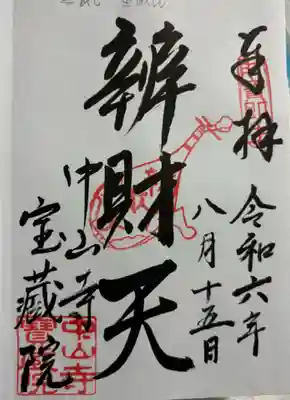 奉拝
令和六年
八月十五日
辨財天
中山寺
宝藏院
中山寺
寶藏院